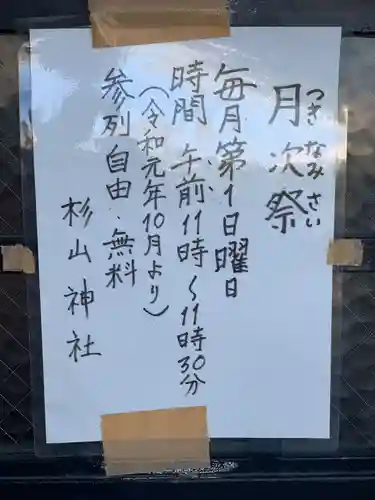 月次祭
つきなみさい
毎月第1日曜日
時間 午前11時~11時30分
(令和元年10月より)
参列自由・無料
杉山神社